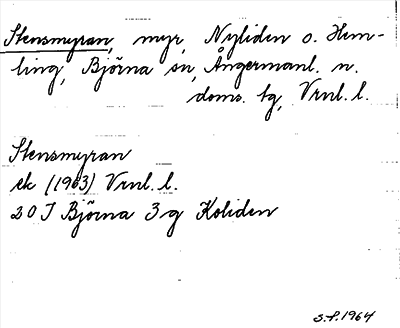 Stensmyran, myr, Nyliden o. Hem-
ling, Björna sn, Ångermanl. n.
doms. tg, Vrnl. l.
Stensmyran
ek (1963) Vrnl. l.
20 J Björna 3 g Koliden
S.P. 1964